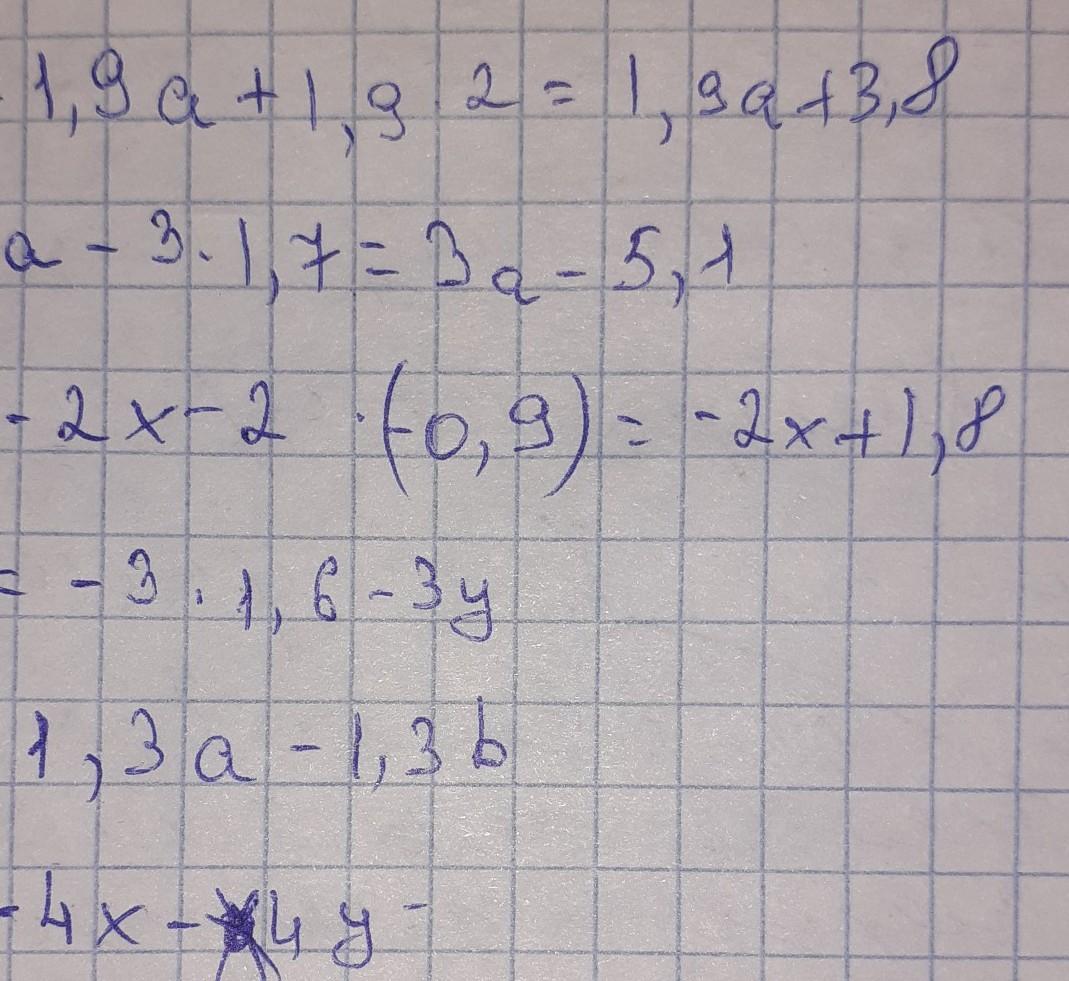 1,9a + 1,9 2 = 1,9a + 3,8
a - 3 · 1,7 = 3a - 5,1
- 2x - 2 · (-0,9) = -2x + 1,8
= -3 · 1,6 - 3y
1,3a - 1,3b
- 4x - 4y -